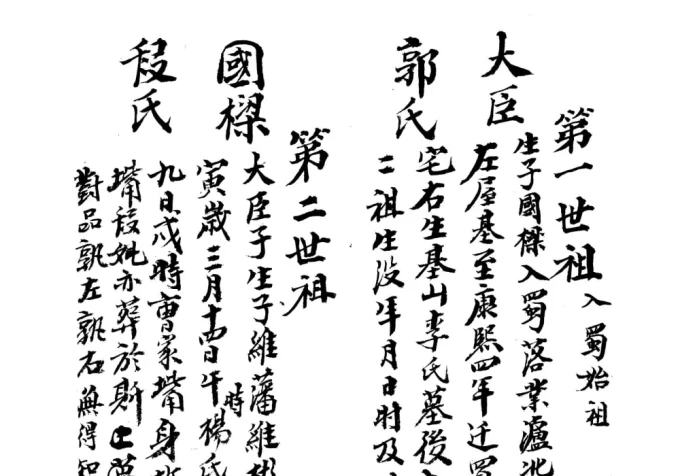 第一世祖入蜀始祖
大臣
生子國樑入蜀落業瀘北
左屋基至康熙四年迁
郭氏
宅右生基山李氏墓後
二祖生没年月日時及
第二世祖
國樑
大臣子生子維藩維
寅歲三月十四日午時楊氏
段氏
九日戌時曹家嘴身
嘴段妣亦葬於斯
對品孰左孰右無得知